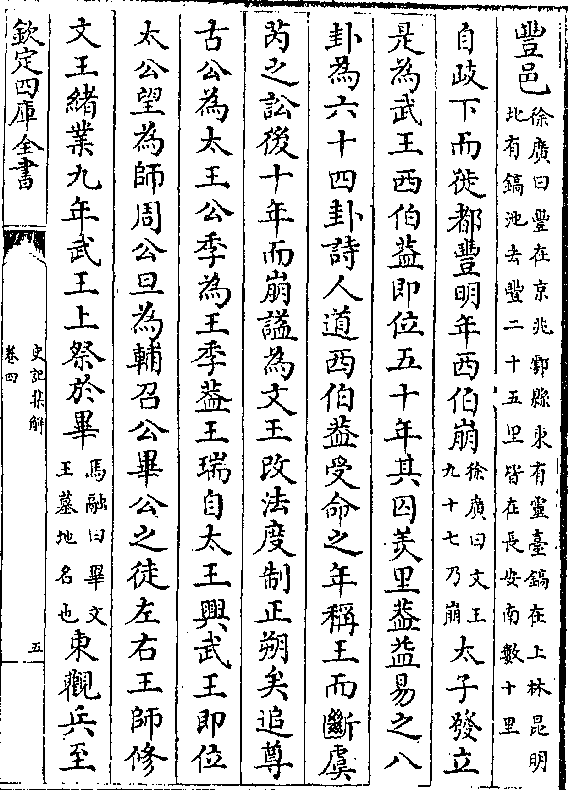 豐邑徐廣曰豐在京兆鄠縣東有靈臺鎬在上林昆明北有鎬池去豐二十五里皆在長安南數十里
自歧下而徙都豐明年西伯崩徐廣曰文王九十七乃崩太子發立
是為武王西伯葢即位五十年其囚羑里葢益易之八
卦為六十四卦詩人道西伯葢受命之年稱王而斷虞
芮之訟後十年而崩謚為文王改法度制正朔矣追尊
古公為太王公季為王季葢王瑞自太王興武王即位
太公望為師周公旦為輔召公畢公之徒左右王師修
文王緒業九年武王上祭於畢馬融曰畢文王墓地名也東觀兵至
欽定四庫全書
史記集解
卷四
五